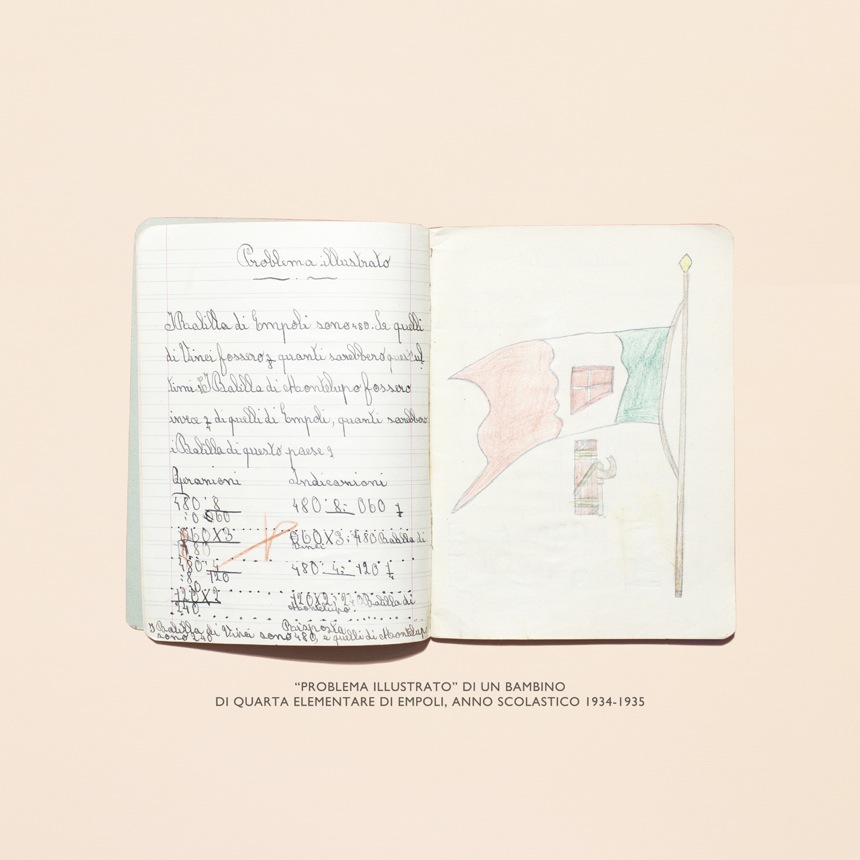 Problema illustrato
I Balilla di Empoli sono 480. Se quelli
di Vinci fossero quanti sarebbero
I Balilla di Montelupo fossero
invece di quelli di Empoli, quanti sarebbero
i Balilla di questo paese?
Operazioni Indicazioni
480:8 480:8= 060
:0 060
060X3 060X3= 180 Balilla di
180 Vinci
480:4 480:4= 120
:8 120
120X2 Balilla di
240 Montelupo.
Risposta
I Balilla di Vinci sono e quelli di Montelupo
sono 240
“PROBLEMA ILLUSTRATO” DI UN BAMBINO
DI QUARTA ELEMENTARE DI EMPOLI, ANNO SCOLASTICO 1934-1935